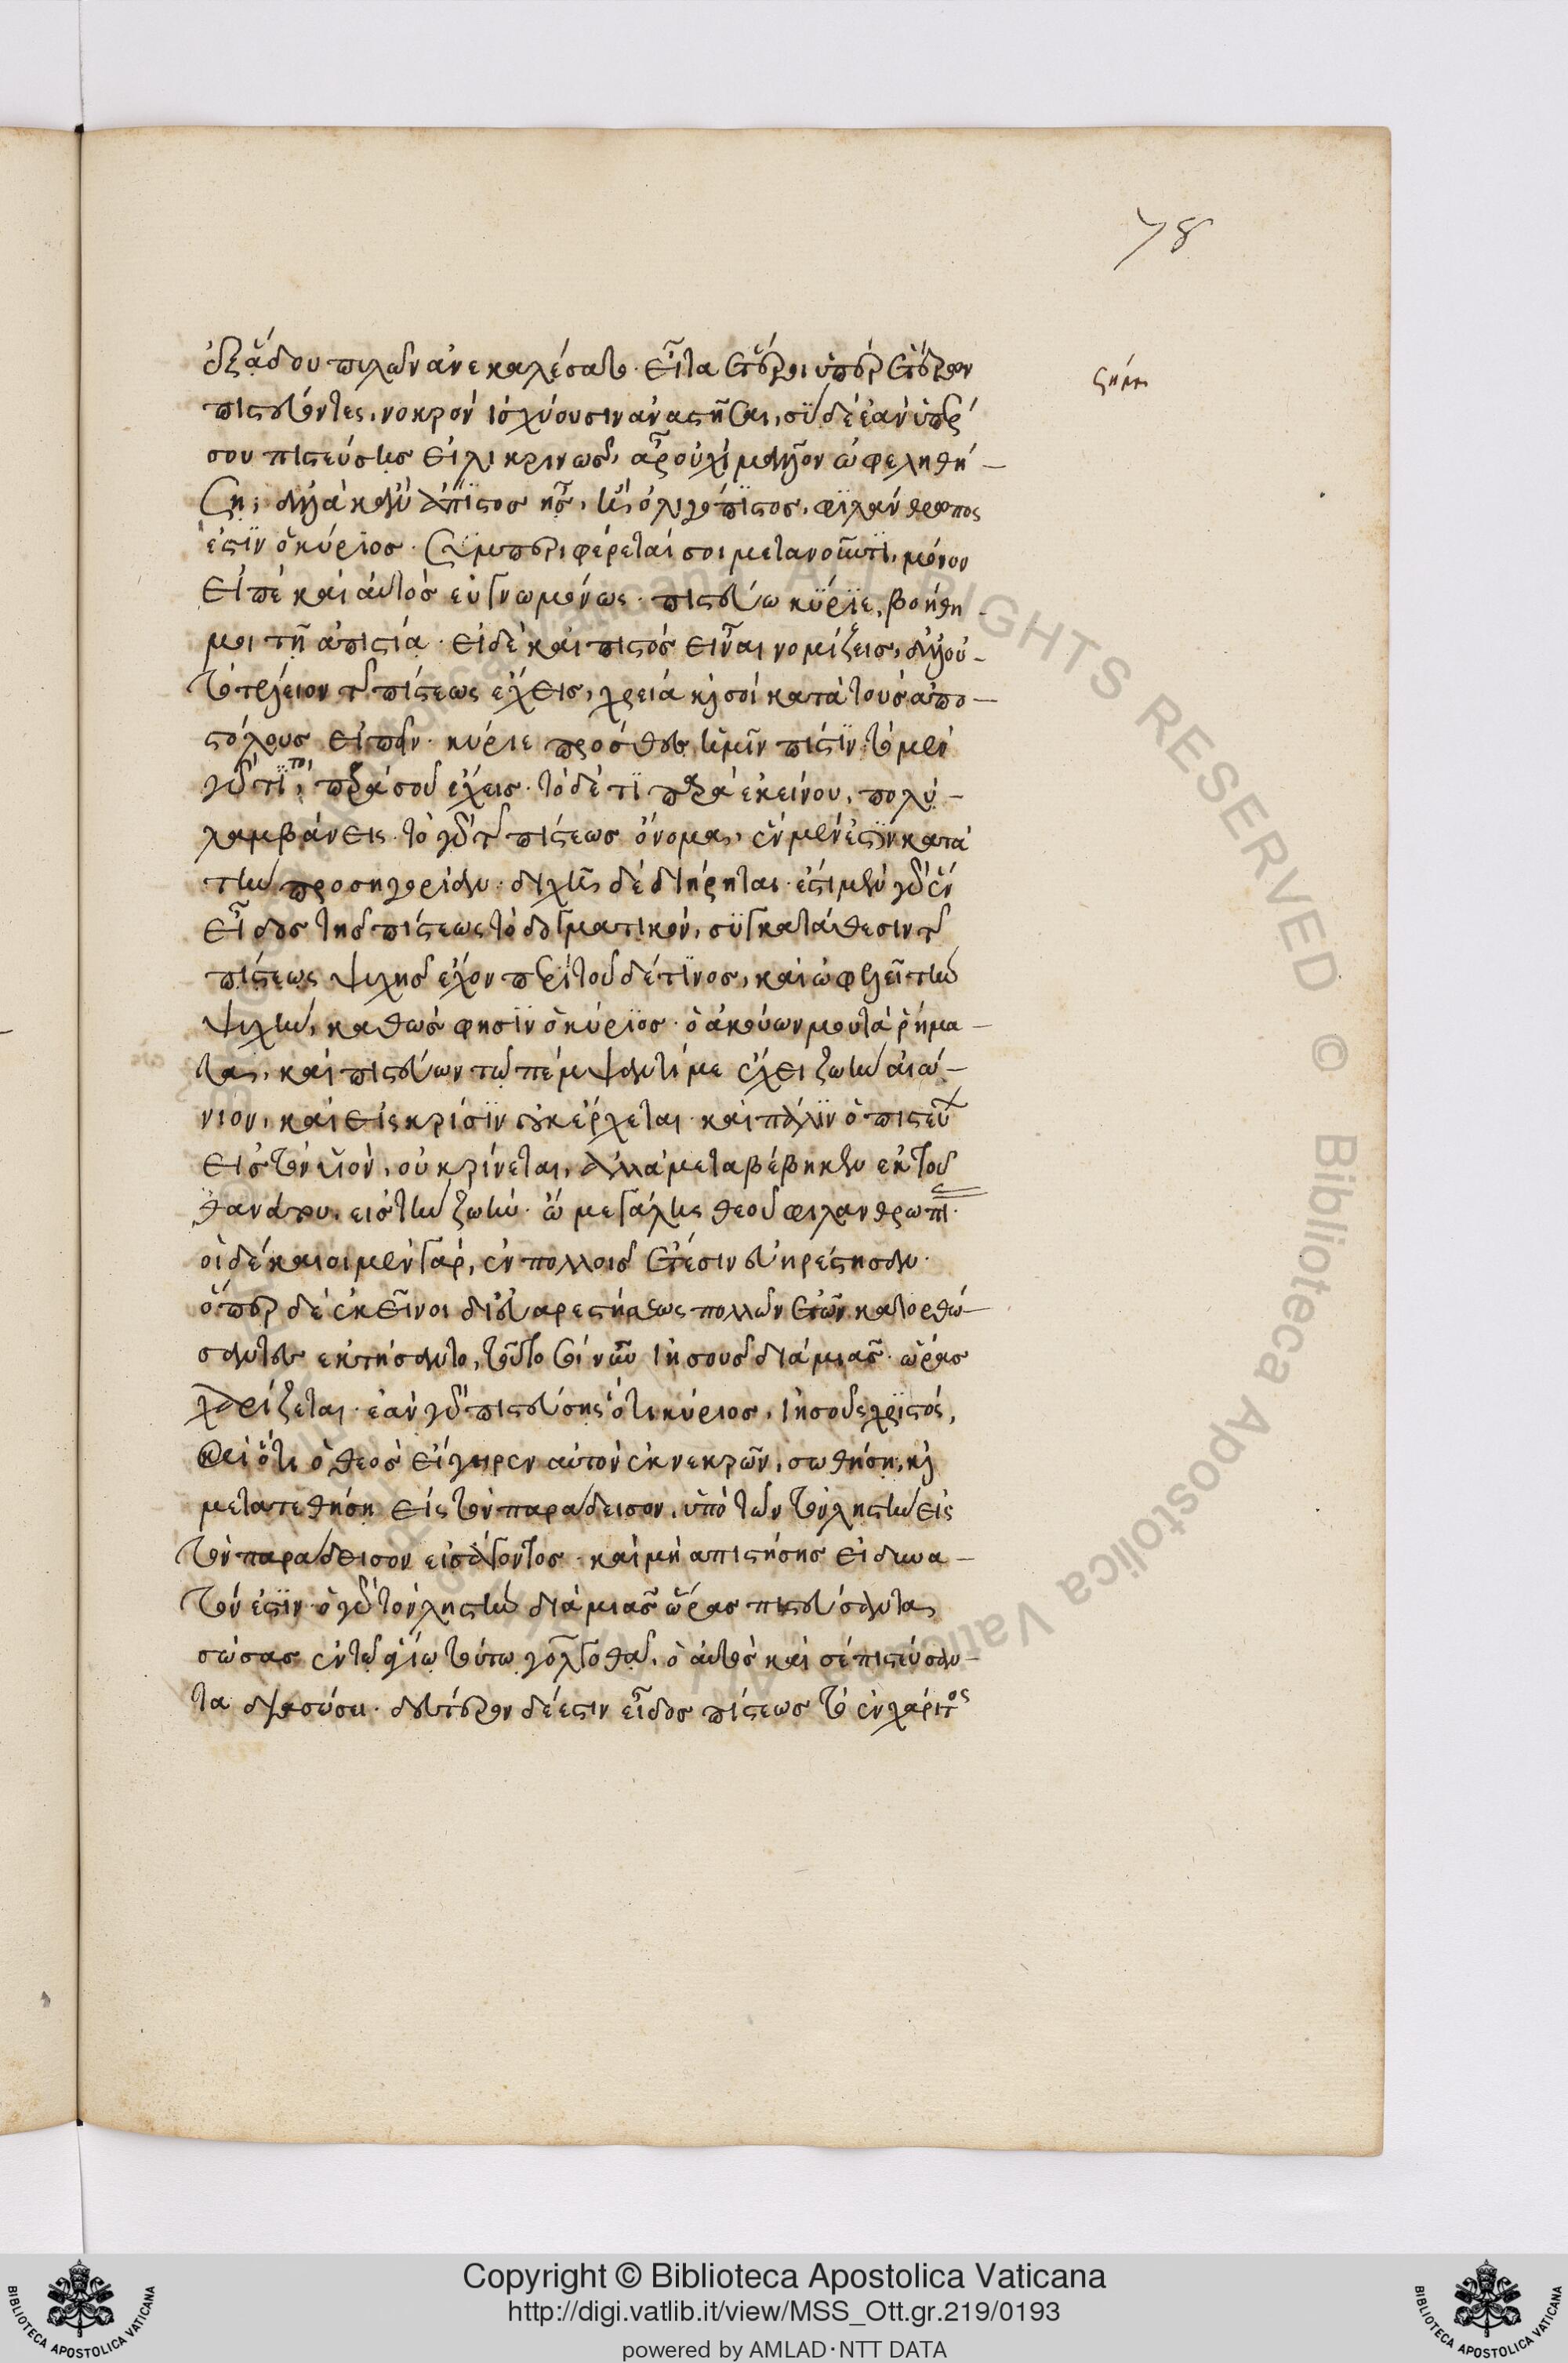 78
ἐξ ᾅδου πυλῶν ἀνεκαλέσατο. εἶτα ἕτεροι ὑπὲρ ἑτέρων
πιστεύοντες, νεκρὸν ἰσχύουσιν ἀναστῆσαι, σὺ δὲ ἐὰν ὑπὲρ
σου πιστεύσῃς εἰλικρινῶς, ἆρ οὐχὶ μᾶλλον ὠφεληθή-
ση; ἀλλὰ κἂν ἄπιστος ᾖς, ἢ ὀλιγόπιστος, φιλάνθρωπος
ἐστὶν ὁ κύριος. συμπεριφέρεταί σοι μετανοοῦντι, μόνον
εἰπὲ καὶ αὐτὸς εὐγνωμόνως. πιστεύω κύριε, βοήθη
μοι τῇ ἀπιστίᾳ. εἰ δὲ καὶ πιστὸς εἶναι νομίζεις, ἀλλ οὐ-
τὸ τέλειον τῆς πίστεως ἔχεις, χρεία καὶ σοὶ κατὰ τοὺς ἀπο-
στόλους εἰπεῖν. κύριε πρόσθες ἡμῖν πίστιν. τὸ μὲν
γάρ τι, παρὰ σοῦ ἔχεις. τὸ δέ τι παρὰ ἐκείνου, πολὺ-
λαμβάνεις. τὸ γὰρ τῆς πίστεως ὄνομα, ἓν μέν ἐστιν κατὰ
τὴν προσηγορίαν. διχῆ δὲ διῄρηται. ἔστι μὲν γὰρ ἓν
εἶδος τῆς πίστεως τὸ δογματικόν, συγκατάθεσιν τῆς
πίστεως ψυχῆς ἔχον περὶ τοῦδέ τινος, καὶ ὠφελεῖ τὴν
ψυχήν, καθώς φησιν ὁ κύριος. ὁ ἀκούων μου τὰ ῥήμα-
τα, καὶ πιστεύων τῷ πέμψαντί με ἔχει ζωὴν αἰώ-
νιον, καὶ εἰς κρίσιν οὐκ ἔρχεται. καὶ πάλιν ὁ πιστεύ
εἰς τὸν υἱὸν, οὐ κρίνεται, ἀλλὰ μεταβέβηκεν ἐκ τοῦ
θανάτου εἰς τὴν ζωήν. ὢ μεγάλης θεοῦ φιλανθρωπί
οἱ δίκαιοι μὲν γὰρ, ἐν πολλοῖς ἔτεσιν εὐηρέστησαν.
ὅπερ δὲ ἐκεῖνοι δι εὐαρεστήσεως πολλῶν ἐτῶν κατορθώ-
σαντες ἐκτήσαντο, τοῦτό σοι νῦν Ἰησοῦς διὰ μιᾶς ὥρας
χαρίζεται. ἐὰν γὰρ πιστεύσῃς ὅτι κύριος, Ἰησοῦς χριστός,
καὶ ὅτι ὁ θεὸς ἤγειρεν αὐτὸν ἐκ νεκρῶν, σωθήσῃ, καὶ
μετατεθήσῃ εἰς τὸν παράδεισον, ὑπὸ τῶν τὸν λῃστὴν εἰς
τὸν παράδεισον εἰσάγοντος. καὶ μὴ ἀπιστήσῃς εἰ δυνα-
τόν ἐστιν. ὁ γὰρ τὸν λῃστὴν διὰ μιᾶς ὥρας πιστεύσαντα
σώσας ἐν τῷ ἁγίῳ τούτῳ γολγοθᾶ, ὁ αὐτὸς καὶ σὲ πιστεύσαν-
τα διασώσει. δεύτερον δέ ἐστιν εἶδος πίστεως τὸ ἐν χάριτος
Copyright © Biblioteca Apostolica Vaticana
http://digi.vatlib.it/view/MSS_Ott.gr.219/0193
powered by AMLAD·NTT DATA